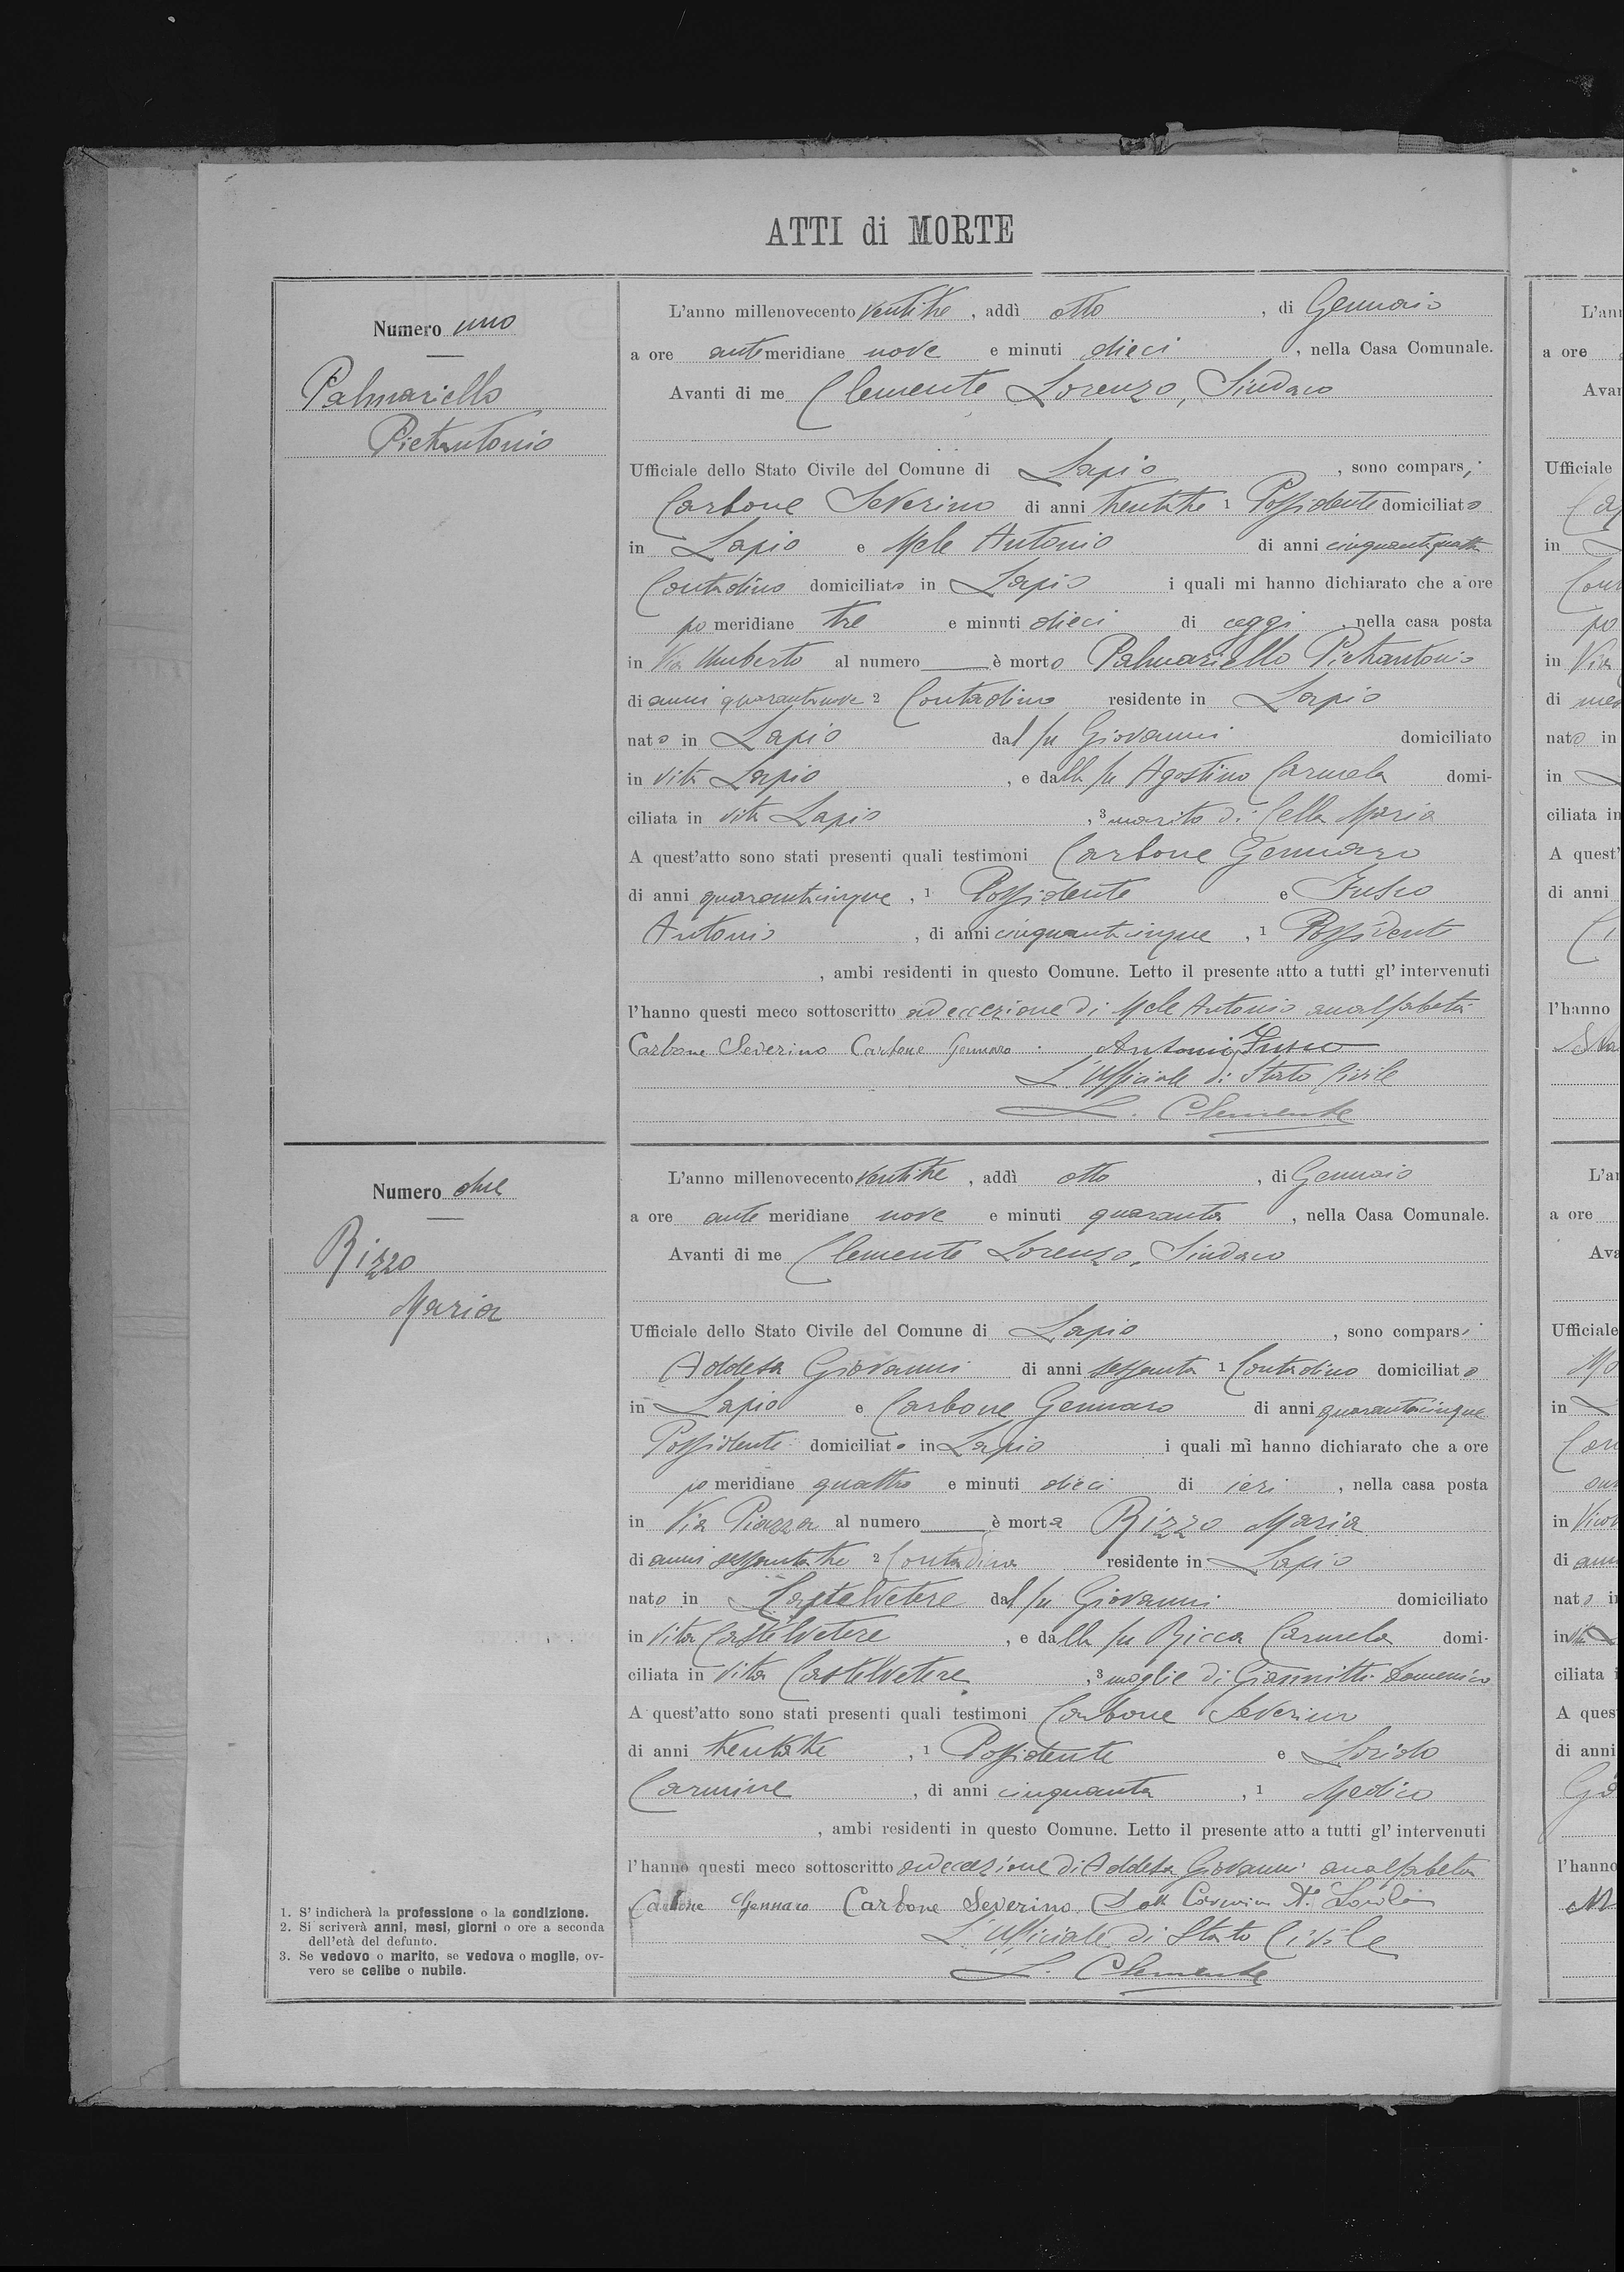 ATTI di MORTE
Numero uno
Palmariello
Pietrantonio
L'anno millenovecento ventitre, addì otto, di Gennaio
a ore antemeridiane nove e minuti dieci, nella Casa Comunale.
Avanti di me Clemente Lorenzo, Sindaco
Ufficiale dello Stato Civile del Comune di Lapio, sono comparsi
Carbone Severino di anni trentatre 1 Possidente domiciliato
in Lapio e Mele Antonio di anni cinquantaquattro
Contadino domiciliato in Lapio i quali mi hanno dichiarato che a ore
pomeridiane tre e minuti dieci di oggi, nella casa posta
in Via Umberto al numero è morto Palmariello Pietrantonio
di anni quarantanove 2 Contadino residente in Lapio
nato in Lapio dal fu Giovanni domiciliato
in vita Lapio, e dalla fu Agostino Carmela domi-
ciliata in vita Lapio, 3 marito di Cella Maria
A quest'atto sono stati presenti quali testimoni Carbone Gennaro
di anni quarantacinque, 1 Possidente e Fusco
Antonio, di anni cinquantacinque, 1 Possidente
, ambi residenti in questo Comune. Letto il presente atto a tutti gl'intervenuti
l'hanno questi meco sottoscritto ad eccezione di Mele Antonio analfabeta
Carbone Severino Carbone Gennaro. Antonio Fusco
L'Ufficiale di Stato Civile
L. Clemente
Numero due
Rizzo
Maria
L'anno millenovecento ventitre, addì otto, di Gennaio
a ore antemeridiane nove e minuti quaranta, nella Casa Comunale.
Avanti di me Clemente Lorenzo, Sindaco
Ufficiale dello Stato Civile del Comune di Lapio, sono comparsi
Addesa Giovanni di anni sessanta 1 Contadino domiciliato
in Lapio e Carbone Gennaro di anni quarantacinque
Possidente domiciliato in Lapio i quali mi hanno dichiarato che a ore
pomeridiane quattro e minuti dieci di ieri, nella casa posta
in Via Piazza al numero è morta Rizzo Maria
di anni sessantatre 2 Contadina residente in Lapio
nato in Castelvetere dal fu Giovanni domiciliato
in vita Castelvetere, e dalla fu Ricca Carmela domi-
ciliata in vita Castelvetere, 3 moglie di Giannitti Domenico
A quest'atto sono stati presenti quali testimoni Carbone Severino
di anni trentatre, 1 Possidente e
Carmine, di anni cinquanta, 1 Medico
, ambi residenti in questo Comune. Letto il presente atto a tutti gl'intervenuti
l'hanno questi meco sottoscritto ad eccezione di Addesa Giovanni analfabeta
Carbone Gennaro Carbone Severino
L'Ufficiale di Stato Civile
L. Clemente
1. S'indicherà la professione o la condizione.
2. Si scriverà anni, mesi, giorni o ore a seconda
dell'età del defunto.
3. Se vedovo o marito, se vedova o moglie, ov-
vero se celibe o nubile.